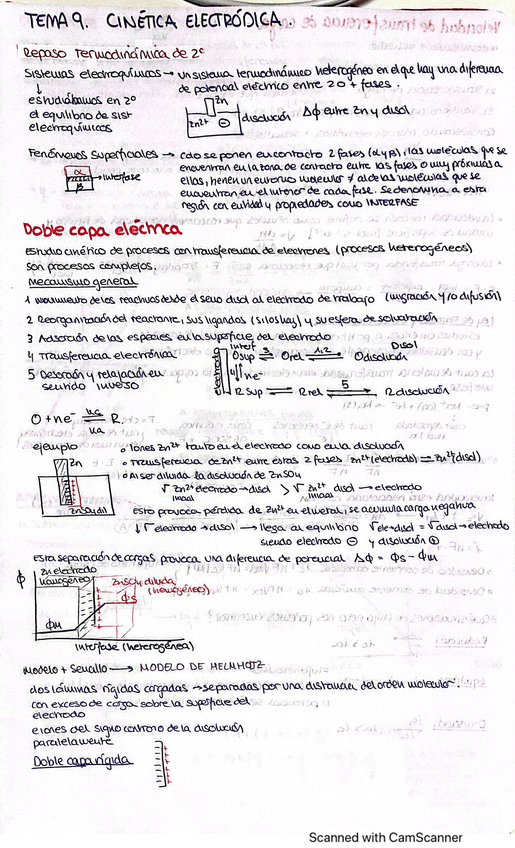 TEMA 9. CINÉTICA ELECTRÓDICA.
Repaso Termodinámica de 2º
Sistemas electroquímicos → un sistema termodinámico heterogéneo en el que hay una diferencia
de potencial eléctrico entre 2 o + fases.
↓
estudiábamos en 2º
el equilibrio de sist
electroquímicos
Zn
Zn2+
⊖
disolución
Δϕ entre Zn y disol
Fenómenos superficiales → cdo se ponen en contacto 2 fases (α y β), las moléculas que se
encuentran en la zona de contacto entre las fases o muy próximas a
ellas, tienen un entorno molecular ≠ al de las moléculas que se
encuentran en el interior de cada fase. Se denomina a esta
región con entidad y propiedades como INTERFASE
α
β
→ interfase
Doble capa eléctrica
Estudio cinético de procesos con transferencia de electrones (procesos heterogéneos)
son procesos complejos.
Mecanismo general
1 movimiento de los reactivos desde el seno disol al electrodo de trabajo (migración y/o difusión)
2 Reorganización del reactante, sus ligandos (si los hay) y su esfera de solvatación
3 Adsorción de las especies en la superficie del electrodo
4 Transferencia electrónica
5 Desorción y relajación en
sentido inverso
electrodo
interf
Disol
Osup ⇌ 3 Orel ⇌ 1,2 Odisolución
ne-
Rsup ⇌ Rrel ⇌ 5 Rdisolución
O + ne- ⇌ R.
ejemplo
Zn
ZnSO4 dil
• Iones Zn2+ tanto en el electrodo como en la disolución
• Transferencia de Zn2+ entre estas 2 fases Zn2+(electrodo) ⇌ Zn2+(disol)
• Al ser diluida la disolución de ZnSO4
V Zn2+ electrodo → disol > V Zn2+ disol → electrodo
inicial inicial
esto provoca, pérdida de Zn2+ en el metal, se acumula carga negativa
↓ V electrodo → disol → llega al equilibrio V ele→disol = V disol→electrodo
siendo electrodo ⊖ y disolución ⊕
esta separación de cargas provoca una diferencia de potencial Δϕ = ϕs - ϕM
ϕ
Zn electrodo
homogéneo
ZnSO4 diluida
(homogéneo)
ϕM
ϕs
Interfase (heterogénea)
modelo + sencillo → MODELO DE HELMHOLTZ
dos láminas rígidas cargadas → separadas por una distancia del orden molecular.
con exceso de carga sobre la superficie del
electrodo
e iones del signo contrario de la disolución
paralelamente
Doble capa rígida
Scanned with CamScanner